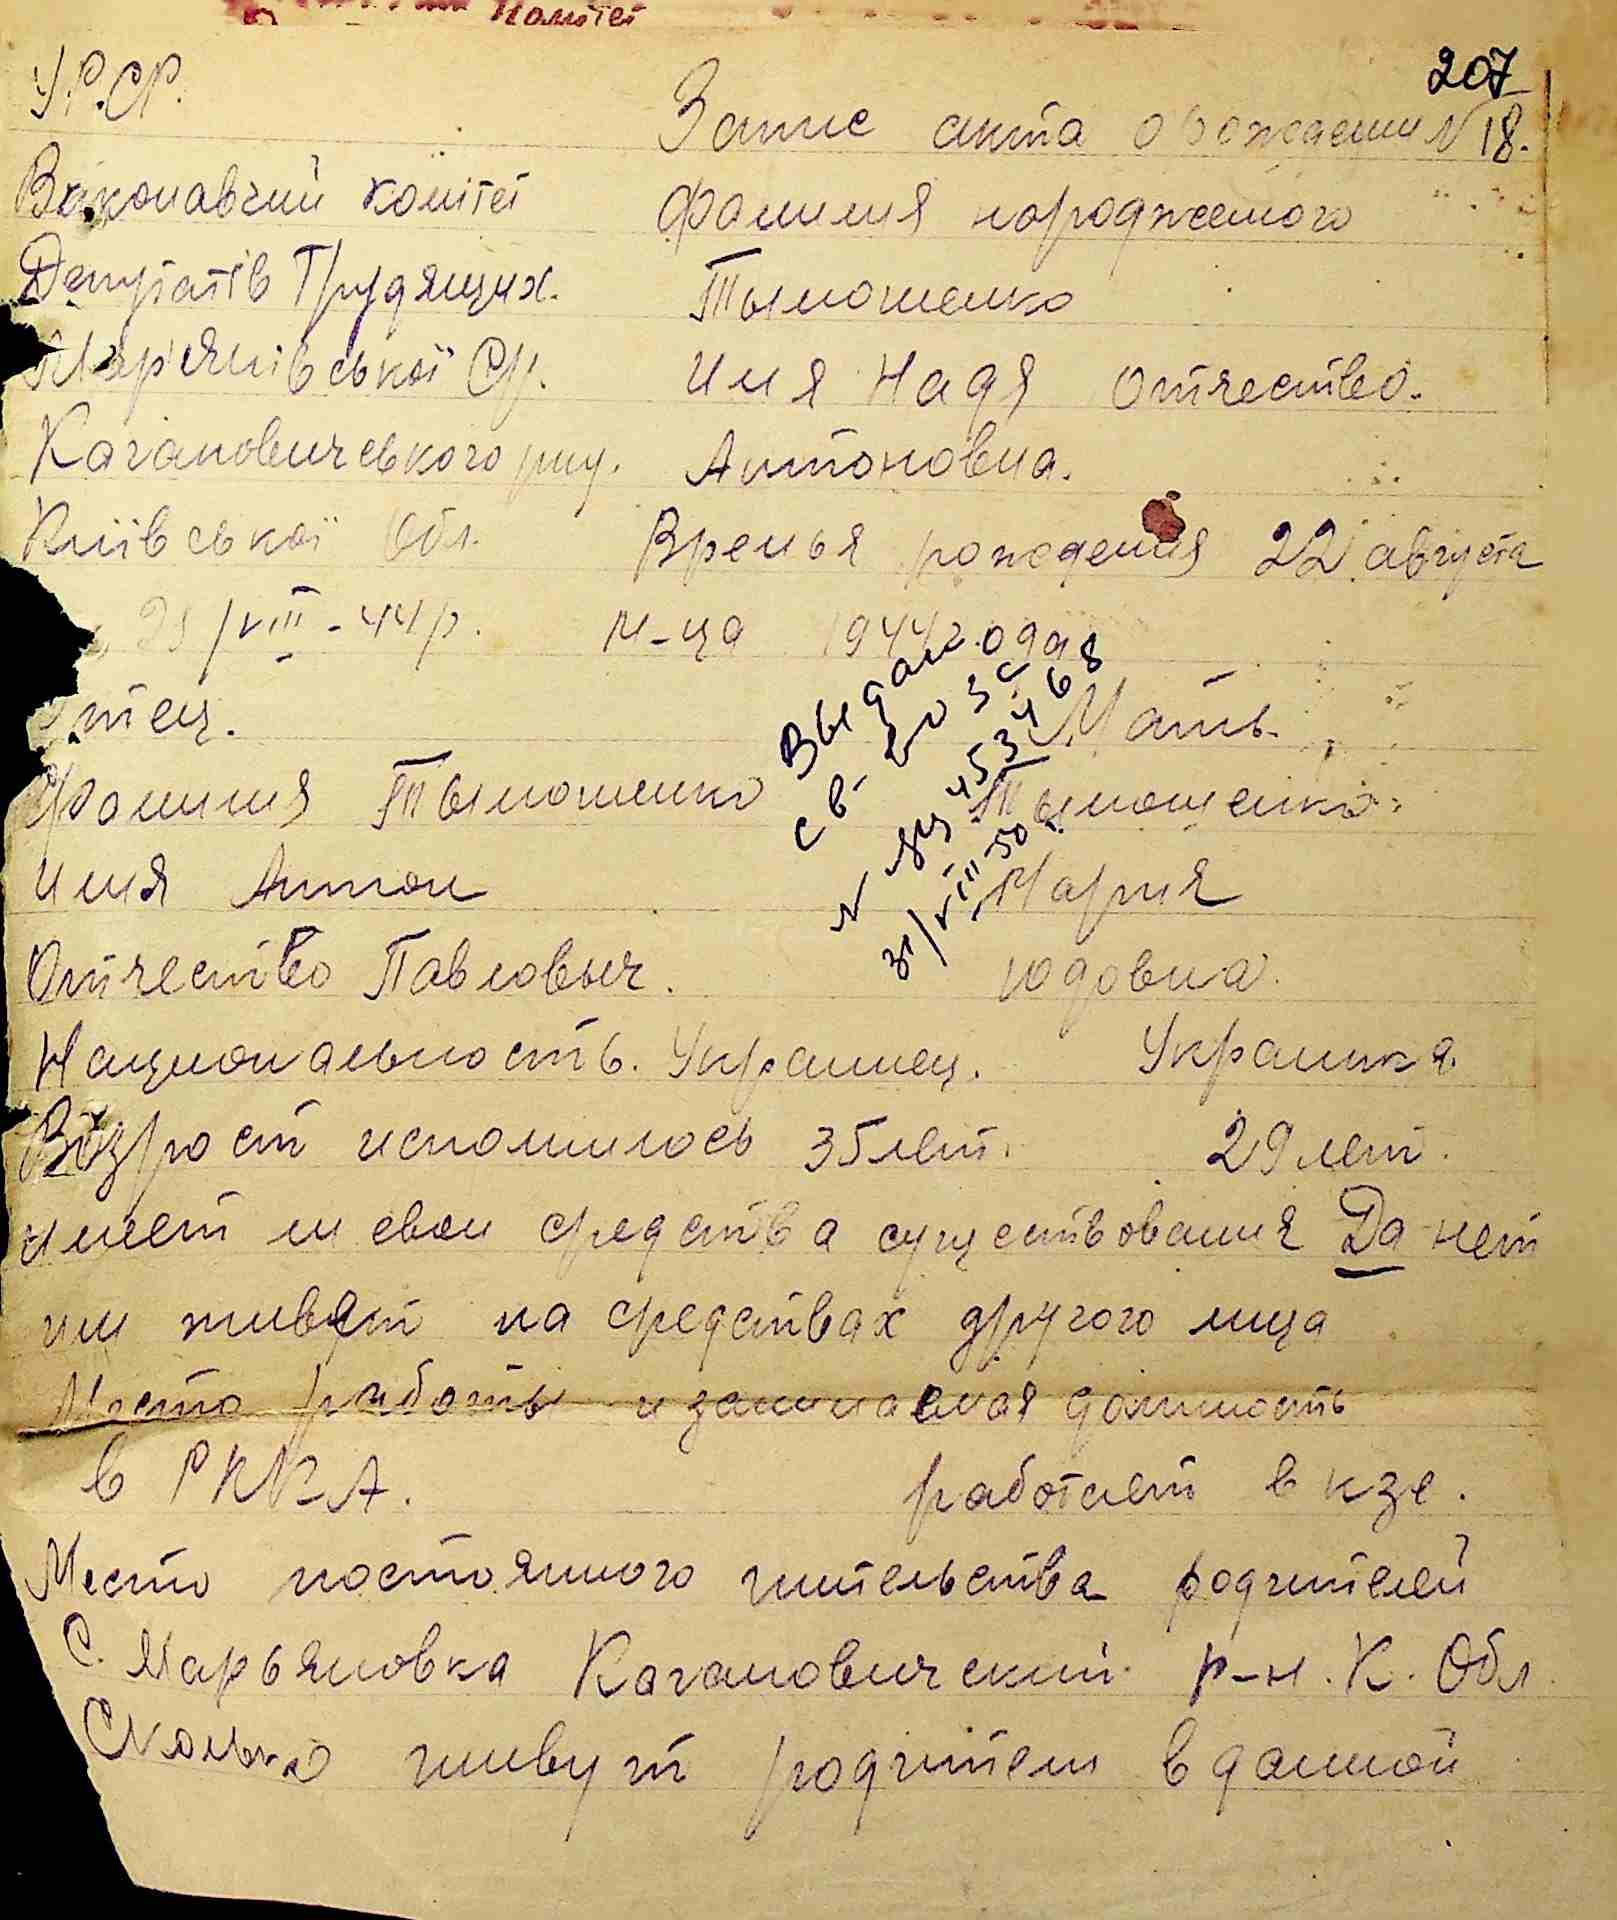 Комітет
207
У.Р.СР.
Запис акта о рождении N 18.
Виконавчий комітет
Фамилия народженого
Депутатів Трудящих.
Тымошенко
Мар'янівської Ср.
Имя Надя Отчество.
Кагановичського рну.
Антоновна.
Київської Обл.
Времья рождения 22 августа
/VIII - 44 р.
м-ца 1944 года
тец.
Мать.
Фамилия Тымошенко
Тымошенко.
Имя Антон
Мария
Отчество Павловыч.
юдовна.
Национальность. Украинец.
Украинка.
Возрост исполнилось 35 лет.
29 лет.
имеет ли свои средства существования Да нет
или живет на средствах другого лица
Место работы и занимаемая должность
в РККА.
работает в кзе.
Место постоянного жительства родителей
С. Марьяновка Кагановический р-н. К. Обл
Сколько живут родители в данной
Выдан
св-во
N 453468
31/VIII-50 г.